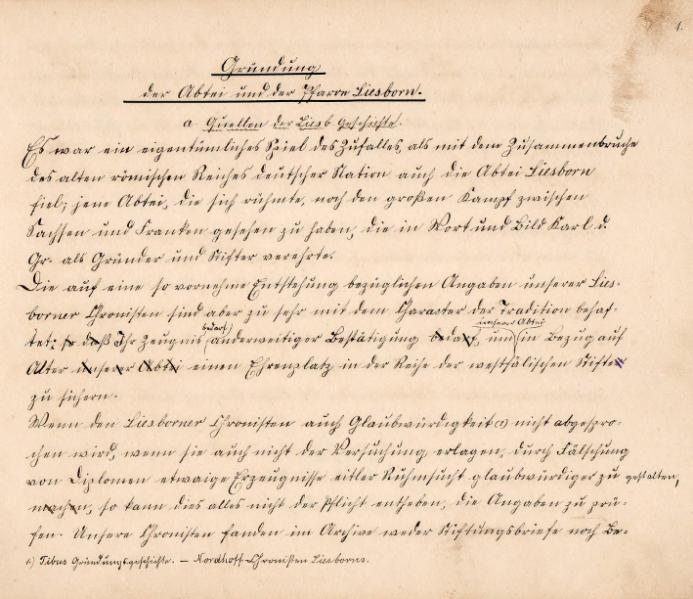 1.
Gründung
der Abtei und der Pfarre Liesborn.
a. Quellen der Liesb. Geschichte.
Es war ein eigentümliches Spiel des Zufalles, als mit dem Zusammenbruche
des alten römischen Reiches deutscher Nation auch die Abtei Liesborn
fiel; jene Abtei, die sich rühmte, noch den großen Kampf zwischen
Sachsen und Franken gesehen zu haben, die in Wort und Bild Karl d.
Gr. als Gründer und Stifter verehrte.
Die auf eine so vornehme Entstehung bezüglichen Angaben unserer Lies-
borner Chronisten sind aber zu sehr mit dem Character der Tradition behaf-
bedarf unserer Abtei
tet; so daß Ihr Zeugnis anderweitiger Bestätigung bedarf, um in Bezug auf
Alter unserer Abtei einen Ehrenplatz in der Reihe der westfälischen Stifter
zu sichern.
Wenn den Liesborner Chronisten auch Glaubwürdigkeit (1) nicht abgespro-
chen wird, wenn sie auch nicht der Versuchung erlagen, durch Fälschung
von Diplomen etwaige Erzeugnisse eitler Ruhmsucht glaubwürdiger zu gestalten,
machen, so kann dies alles nicht der Pflicht entheben, die Angaben zu prü-
fen. Unsere Chronisten fanden im Archive weder Stiftungsbriefe noch Be-
1.) Tibus Gründungsgeschichte. — Nordhoff Chronisten Liesborns.